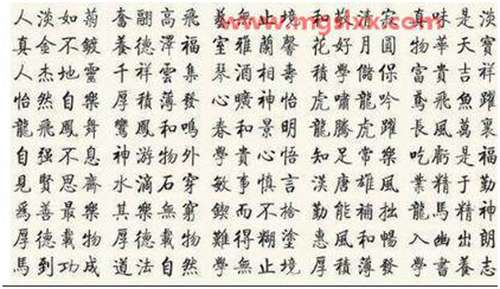 www.mgslxx.com
人淡如菊 奮翮高飛 藝無止境 和敬清寂 真味是淡
真金不鍍 養德澤福 室雅蘭馨 花好月圓 物華天寶
人杰地靈 千祥雲集 琴酒相壽 積學儲保 富貴吉祥
怡然自樂 厚積薄發 心曠神怡 虎嘯龍吟 鳶飛魚躍
龍飛鳳舞 鸞鳳和鳴 春和景明 龍騰虎躍 長風萬裏
自强不息 神游物外 學貴心悟 知足常樂 吃虧是福
見賢思齋 水滴石穿 敏事慎言 漢唐雄風 業精于勤
為善最樂 其樂無窮 鍥而不捨 勤能補拙 龍馬精神
厚德載物 厚德載物 難得糊塗 惠風和暢 入幽出朗
馬到功成 道法自然 學無止境 厚積薄發 學書養志